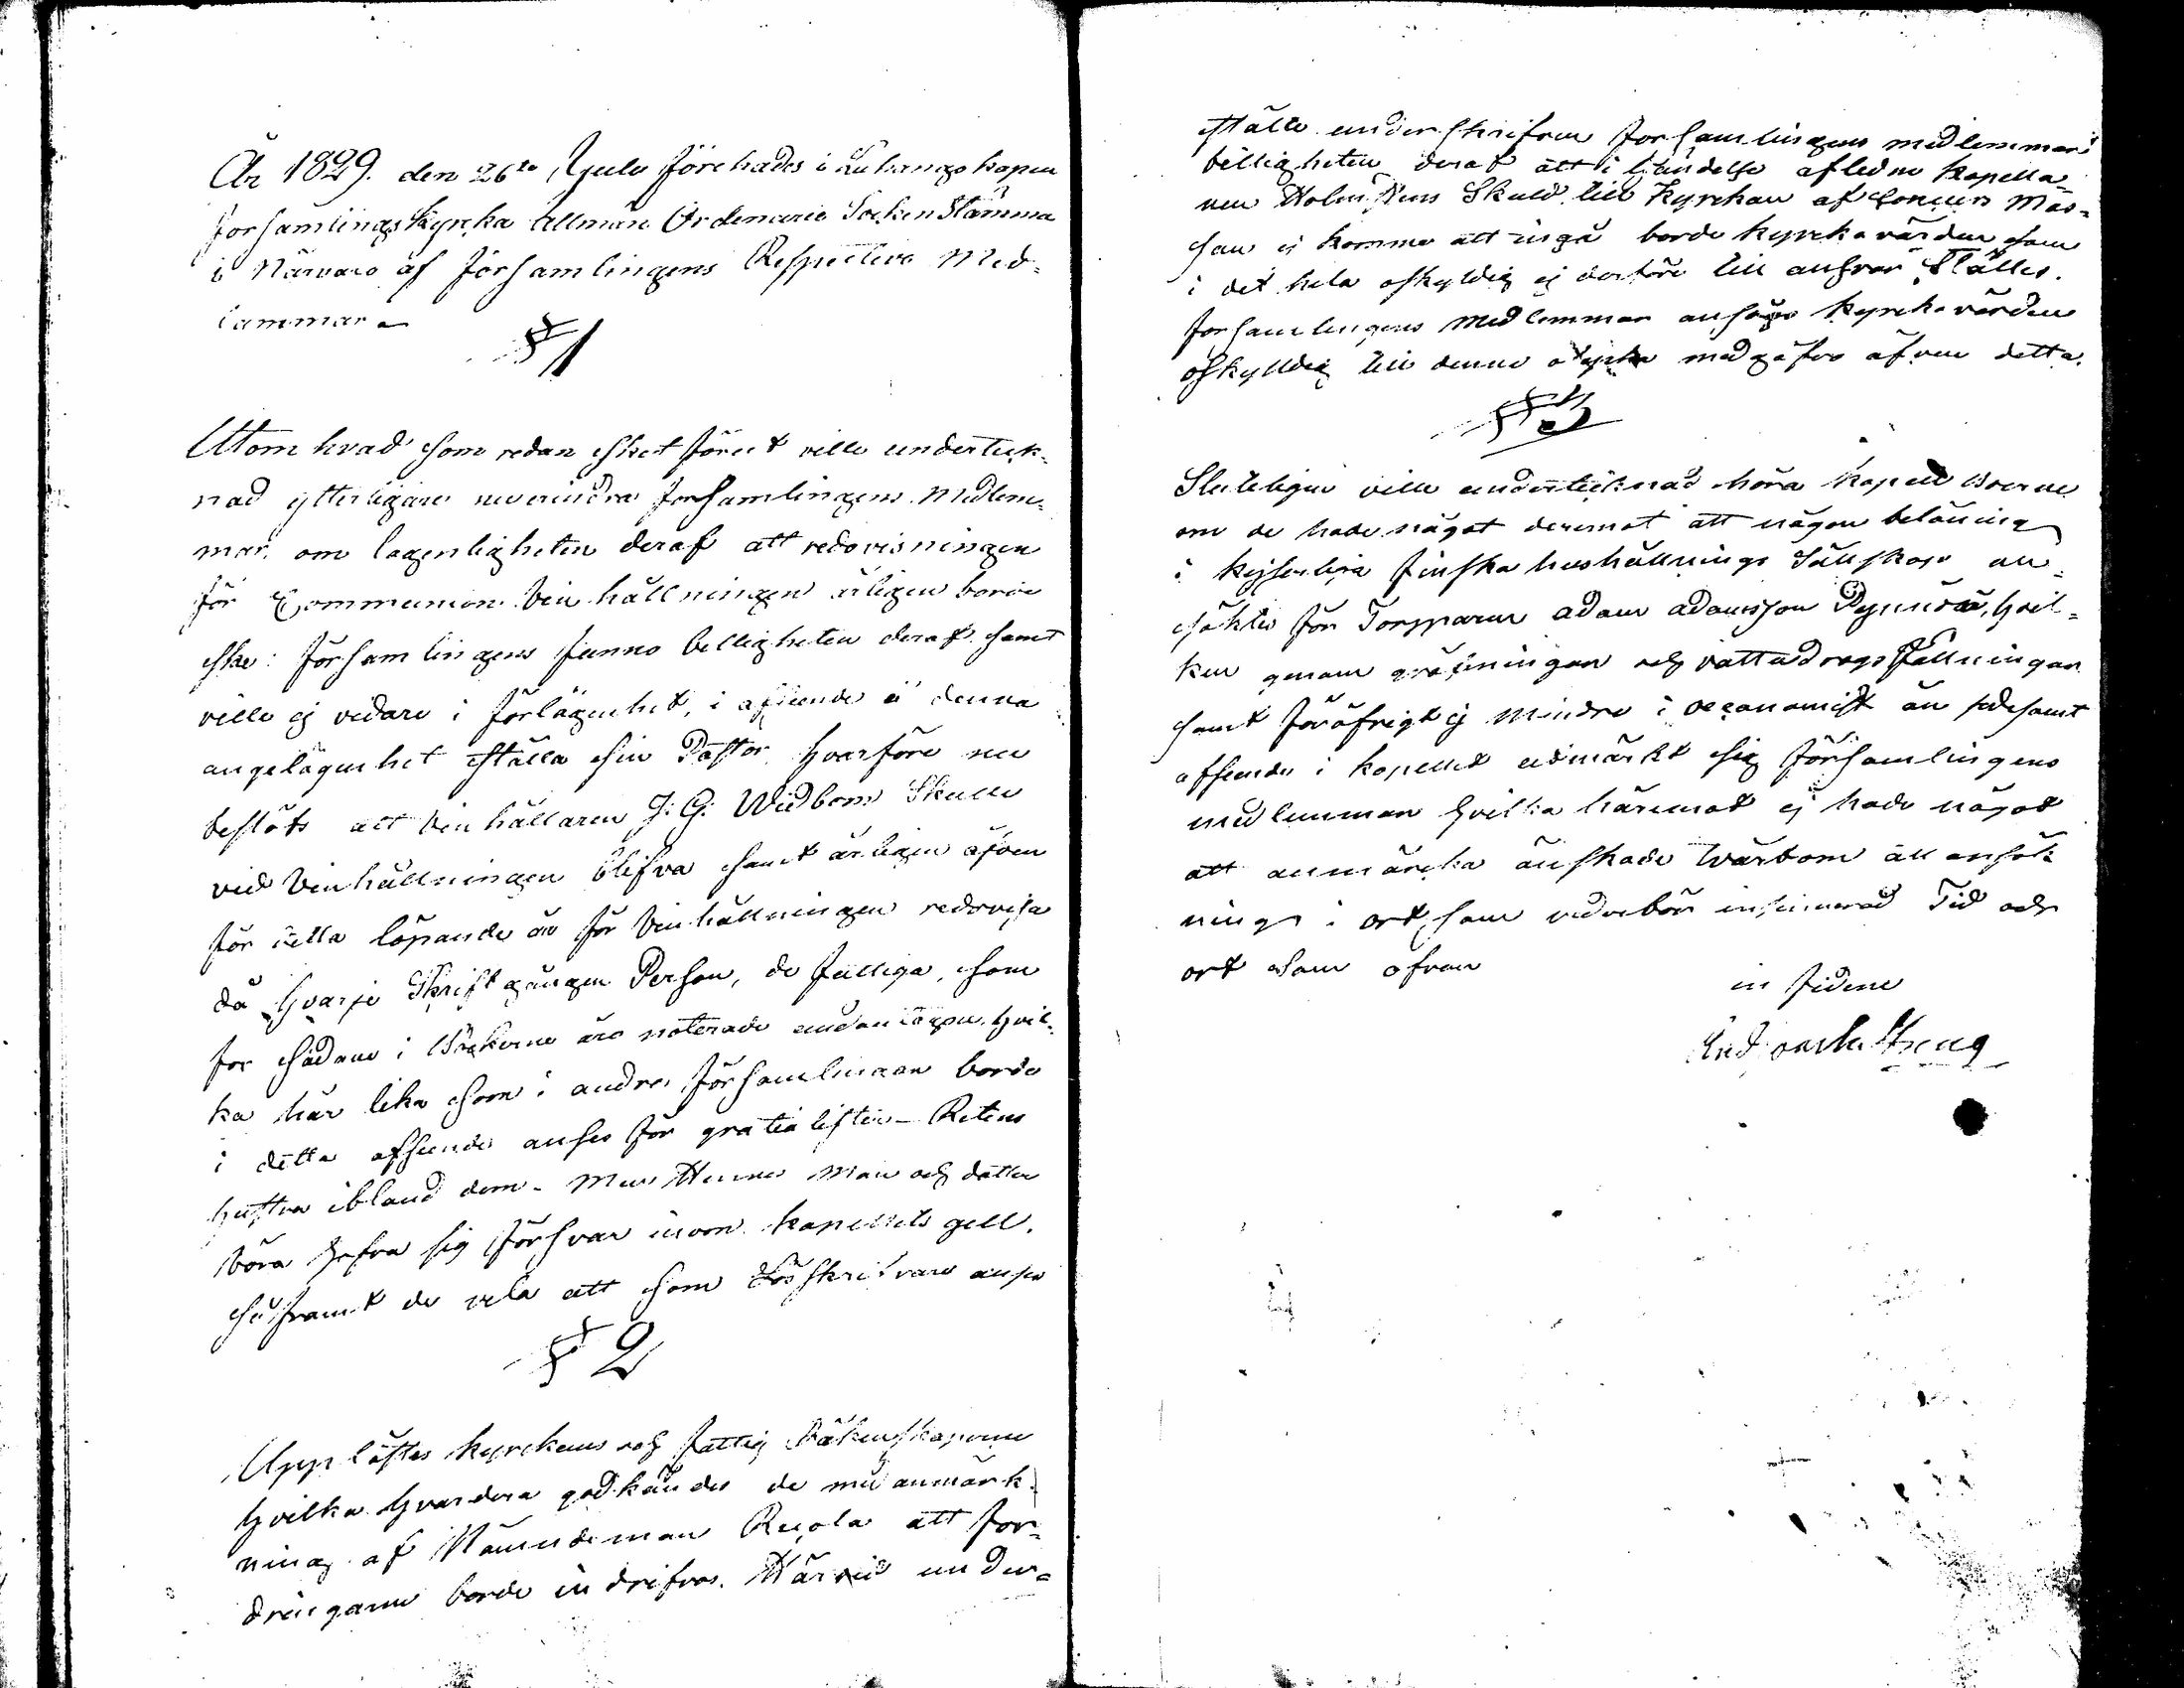 År 1829. den 26te Julii förehades i Luhango kapell
församlings Kyrcka Allmän Ordenarie Socken Stämma
i Närvaro af församlingens Respective Med-
lammar
§ 1
Utom hvad som redan sket förut ville underteck-
nad ytterligare nu erindra församlingens medlem-
mar, om lagenligheten deraf att redovisningen
för Communion Vin hållningen årligen borde
ske: församlingens funno billigheten deraf samt
ville ej vidare i förlägenhet, i afseende å denna
angelägenhet ställa sin Pastor hvarföre nu
beslöts att Vin hållaren J: G: Widbom Skulle
vid Vinhållningen blifva samt årligen äfven
för detta löpande år för Vinhållningen redovisa
då hvarje Skriftgången Person, de fattiga, som
for sådane i Böckerne äro noterade undantagne, hvil-
ka här lika som i andra församlingar borde
i detta afseende anses för gratialister - Retens
hustru ibland dem - men Hennes man och dotter
böra hafva sig försvar inom kapellets gell.
såframt de vela att som Lösskrifvare anses
§ 2
Upp lästes kyrckans och fattig Räkenskaperne
hvilka hvardera godkändes de med anmärk-
ning af Nämndeman Ruola att for-
dringarne borde indrifvas. Härvid under-
ställe underskrifven församlingens medlemmar
billigheten deraf att i händelse afledne Kapella-
nen Holmstens Skuld till Kyrckan af Concurs Mas-
san ej komme att ingå borde kyrckovärden som
i det hela oskyldig ej derföre till ansvar Ställes.
församlingens medlemmar ansågo Kyrckovärden
oskylldig till denne olycka medgåfvo äfven detta.
§ 3
Sluteligen ville undertecknad höra Kapell boerne
om de hade något deremot att någon belöning
i kejserliga finska hushållnings Sällskap an-
söktes för Torpparen Adam Adamsson Pynnöä, hvil-
ken genom gräfningar och vattudrags fällningar
samt föröfrigt ej mindre i oeconomiskt än sedesamt
afseende i kapellet utmärkt sig församlingens
medlemmar hvilka häremot ej hade något
att anmärcka önskade tvärtom all ansök
nings i ort, som vederbör insinuerad Tid och
ort som ofvan
in fidem